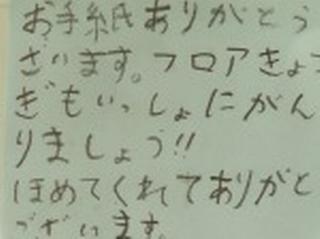 お手紙ありがとう
ざいます。フロアきょう
ぎもいっしょにがん
りましょう!!
ほめてくれてありがと
ございます。